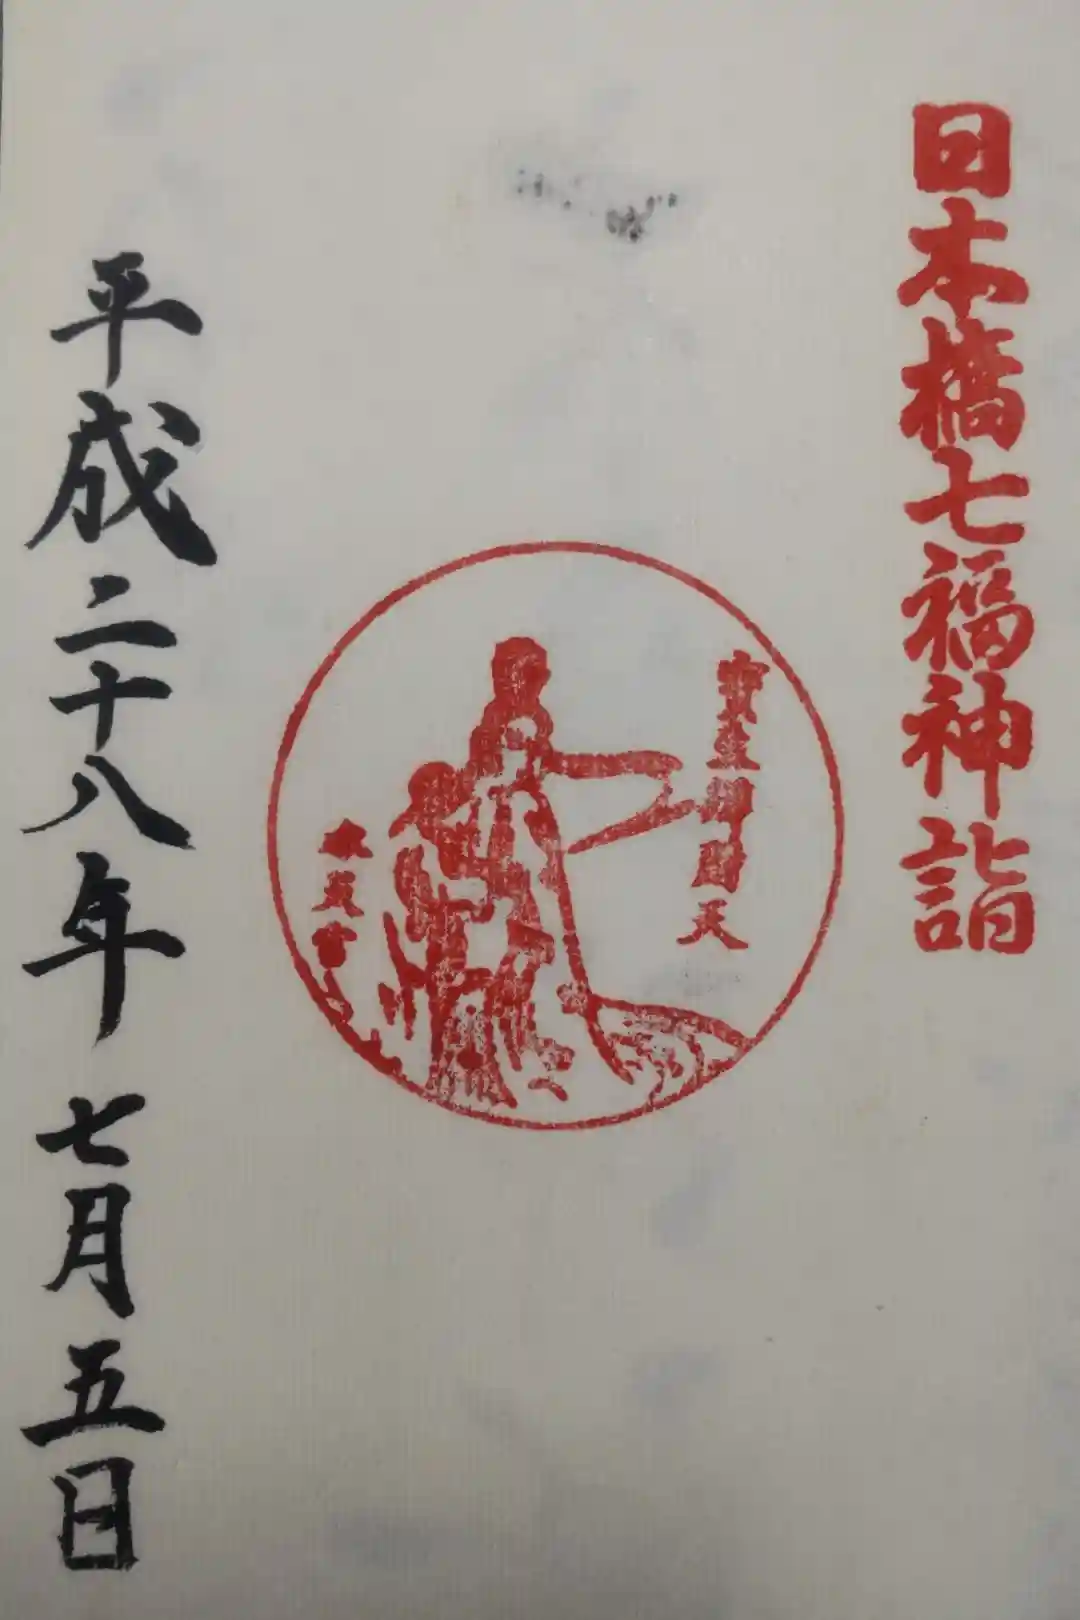 日本橋七福神詣
寳生辨財天
水天宮
平成二十八年七月五日